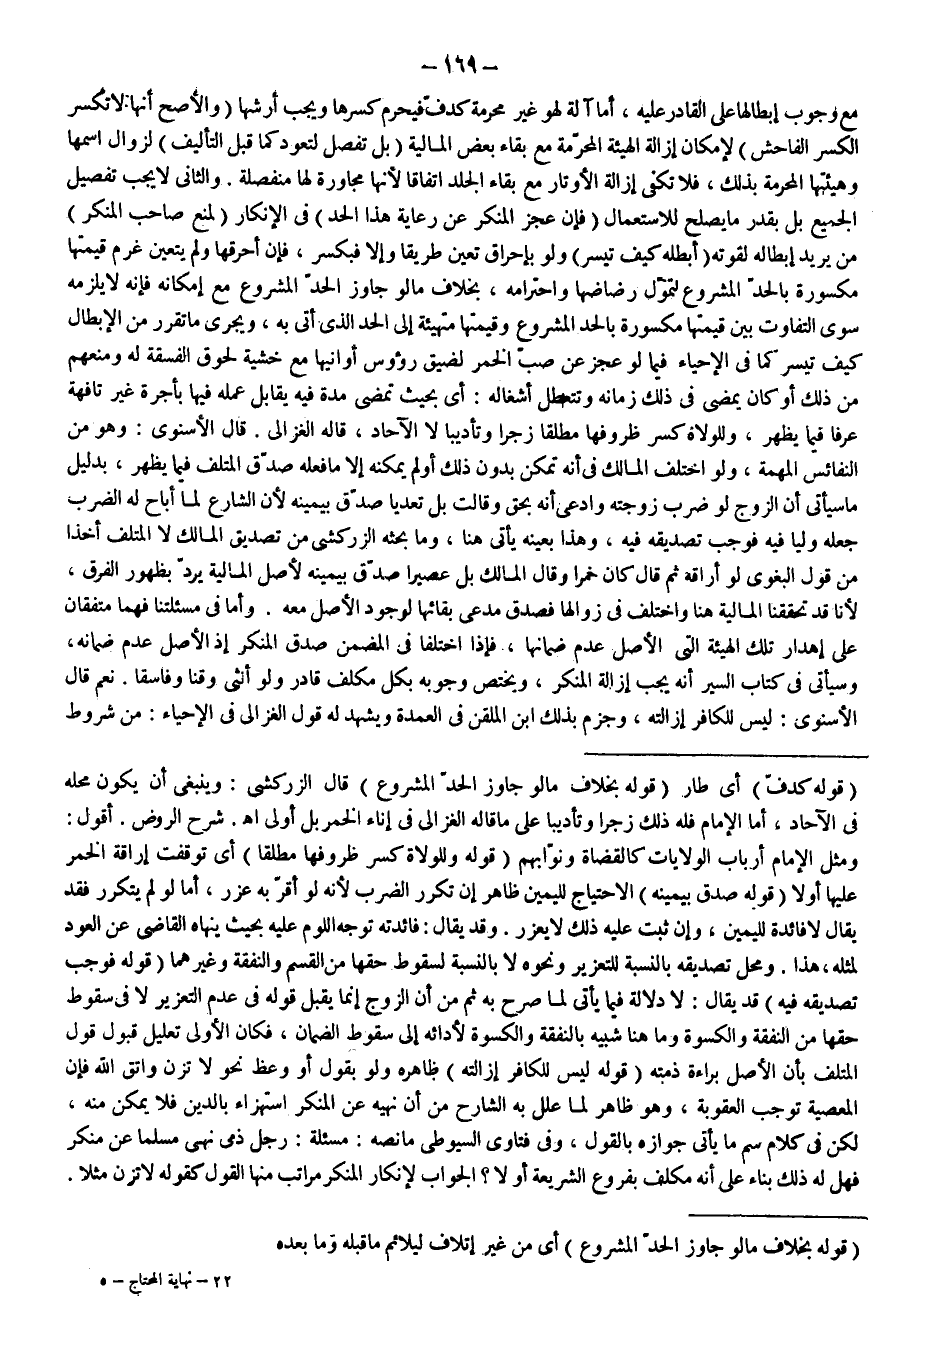 - ١٦٩ -
مع وجوب إبطالها على القادر عليه ، أما آلة لهو غير محرمة كدفّ فيحرم كسرها ويجب أرشها ( والأصح أنها لا تكسر
الكسر الفاحش ) لإمكان إزالة الهيئة المحرّمة مع بقاء بعض المالية ( بل تفصل لتعود كما قبل التأليف ) لزوال اسمها
وهيئتها المحرمة بذلك ، فلا تكفى إزالة الأوتار مع بقاء الجلد اتفاقا لأنها مجاورة لها منفصلة . والثانى لايجب تفصيل
الجميع بل بقدر مايصلح للاستعمال ( فإن عجز المنكر عن رعاية هذا الحد ) فى الإنكار ( لمنع صاحب المنكر )
من يريد إبطاله لقوته ( أبطله كيف تيسر) ولو بإحراق تعين طريقا وإلا فبكسر ، فإن أحرقها ولم يتعين غرم قيمتها
مكسورة بالحدّ المشروع لتموّل رضاضها واحترامه ، بخلاف مالو جاوز الحدّ المشروع مع إمكانه فإنه لايلزمه
سوى التفاوت بين قيمتها مكسورة بالحد المشروع وقيمتها منتهيئة إلى الحد الذى أتى به ، ويجرى ماتقرر من الإبطال
كيف تيسر كما فى الإحياء فيما لو عجز عن صبّ الخمر لضيق رؤوس أوانيها مع خشية لحوق الفسقة له ومنعهم
من ذلك أو كان يمضى فى ذلك زمانه وتتعطل أشغاله : أى بحيث تمضى مدة فيه يقابل عمله فيها بأجرة غير تافهة
عرفا فيما يظهر ، وللولاة كسر ظروفها مطلقا زجرا وتأديبا لا الآحاد ، قاله الغزالى . قال الأسنوى : وهو من
النفائس المهمة ، ولو اختلف المالك فى أنه تمكن بدون ذلك أولم يمكنه إلا مافعله صدّق المتلف فيما يظهر ، بدليل
ماسيأتى أن الزوج لو ضرب زوجته وادعى أنه بحق وقالت بل تعديا صدّق بيمينه لأن الشارع لما أباح له الضرب
جعله وليا فيه فوجب تصديقه فيه ، وهذا بعينه يأتى هنا ، وما بحثه الزركشى من تصديق المالك لا المتلف أخذا
من قول البغوى لو أراقه ثم قال كان خمرا وقال المالك بل عصيرا صدّق بيمينه لأصل المالية يردّ بظهور الفرق ،
لأنا قد تحققنا المالية هنا واختلف فى زوالها فصدق مدعى بقائها لوجود الأصل معه . وأما فى مسئلتنا فهما متفقان
على إهدار تلك الهيئة التى الأصل عدم ضمانها ، فإذا اختلفا فى المضمن صدق المنكر إذ الأصل عدم ضمانه،
وسيأتى فى كتاب السير أنه يجب إزالة المنكر ، ويختص وجوبه بكل مكلف قادر ولو أنثى وقنا وفاسقا . نعم قال
الأسنوى : ليس للكافر إزالته ، وجزم بذلك ابن الملقن فى العمدة ويشهد له قول الغزالى فى الإحياء : من شروط
( قوله كدفّ ) أى طار ( قوله بخلاف مالو جاوز الحدّ المشروع ) قال الزركشى : وينبغى أن يكون محله
فى الآحاد ، أما الإمام فله ذلك زجرا وتأديبا على ماقاله الغزالى فى إناء الخمر بل أولى اه . شرح الروض . أقول :
ومثل الإمام أرباب الولايات كالقضاة ونوّابهم ( قوله وللولاة كسر ظروفها مطلقا ) أى توقفت إراقة الخمر
عليها أولا ( قوله صدق بيمينه ) الاحتياج لليمين ظاهر إن تكرر الضرب لأنه لو أقرّ به عزر ، أما لو لم يتكرر فقد
يقال لافائدة لليمين ، وإن ثبت عليه ذلك لايعزر . وقد يقال : فائدته توجه اللوم عليه بحيث ينهاه القاضى عن العود
لمثله، هذا . ومحل تصديقه بالنسبة للتعزير ونحوه لا بالنسبة لسقوط حقها من القسم والنفقة وغيرهما ( قوله فوجب
تصديقه فيه ) قد يقال : لا دلالة فيما يأتى لما صرح به ثم من أن الزوج إنما يقبل قوله فى عدم التعزير لا فى سقوط
حقها من النفقة والكسوة وما هنا شبيه بالنفقة والكسوة لأدائه إلى سقوط الضمان ، فكان الأولى تعليل قبول قول
المتلف بأن الأصل براءة ذمته ( قوله ليس للكافر إزالته ) ظاهره ولو بقول أو وعظ نحو لا تزن واتق الله فإن
المعصية توجب العقوبة ، وهو ظاهر لما علل به الشارح من أن نهيه عن المنكر استهزاء بالدين فلا يمكن منه ،
لكن فى كلام سم ما يأتى جوازه بالقول ، وفى فتاوى السيوطى مانصه : مسئلة : رجل ذمى نهى مسلما عن منكر
فهل له ذلك بناء على أنه مكلف بفروع الشريعة أو لا ؟ الجواب لإنكار المنكر مراتب منها القول كقوله لاتزن مثلا .
( قوله بخلاف مالو جاوز الحدّ المشروع ) أى من غير إتلاف ليلائم ماقبله وما بعده
٢٢ - نهاية المحتاج - ٥